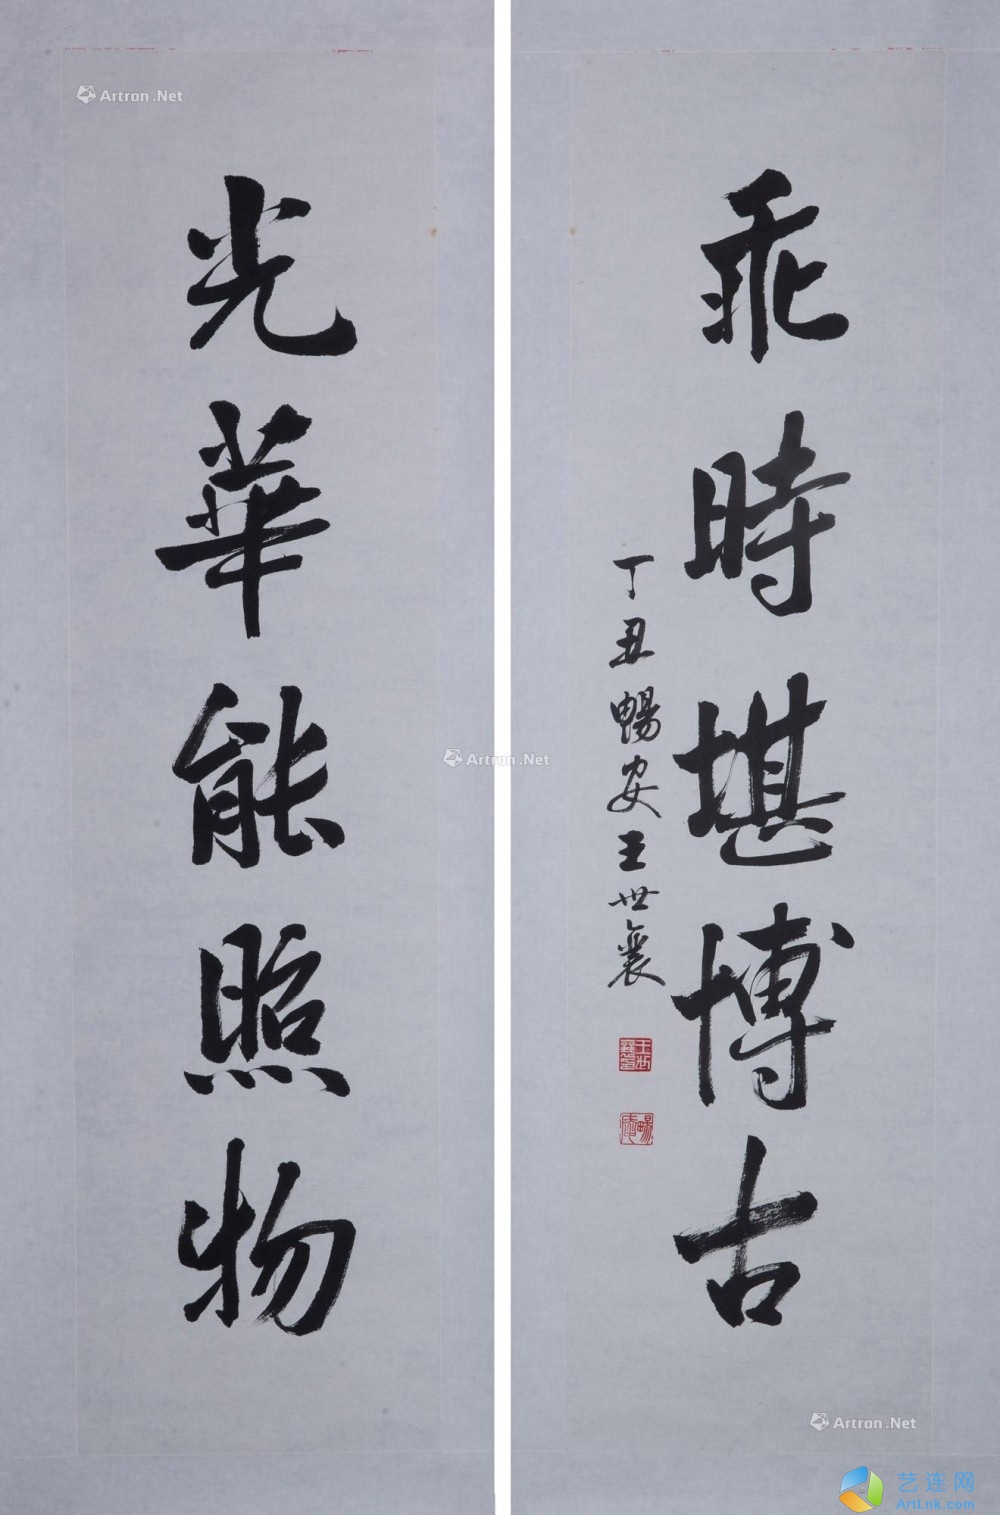 乖時堪博古
丁丑暢安王世襄
王世襄璽
暢安
光華能照物
Artron.Net
Artron.Net
Artron.Net
艺连网
ArtLnk.com